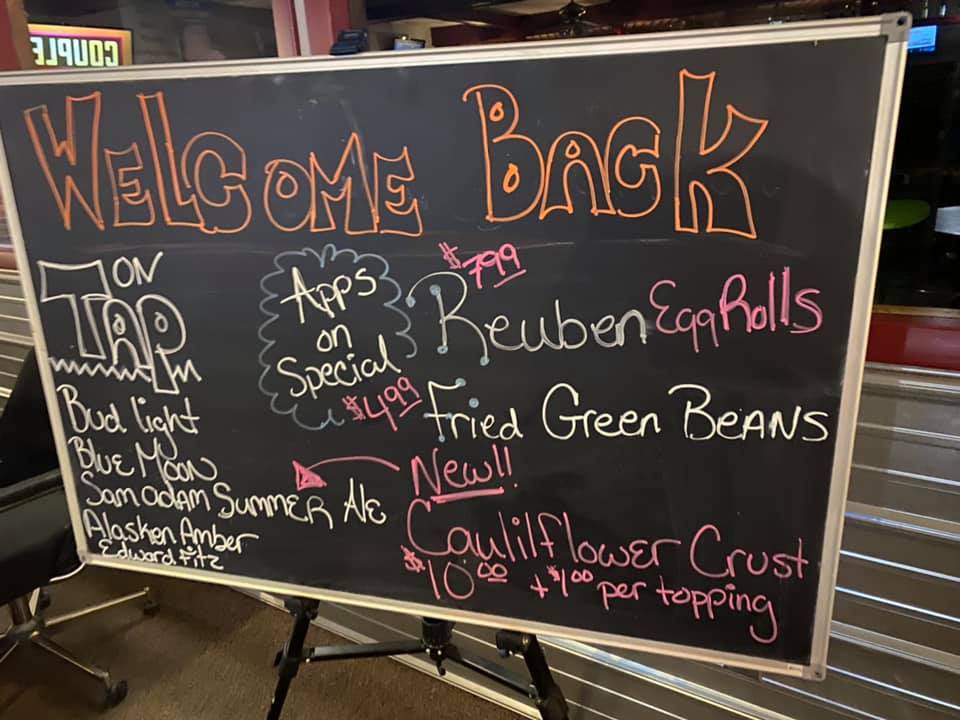 COUPLE
WELCOME BACK
ON
TAP
Bud light
Blue Moon
Sam adam Summer Ale
Alasken Amber
Edward Fitz
Apps
on
Special
$7.99
Reuben Egg Rolls
$4.99
Fried Green Beans
New!!
Caulilflower Crust
$10.00 + $1.00 per topping